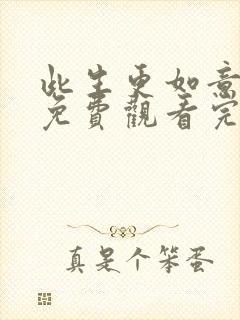 此生更如意
免費觀看完
真是个笨蛋